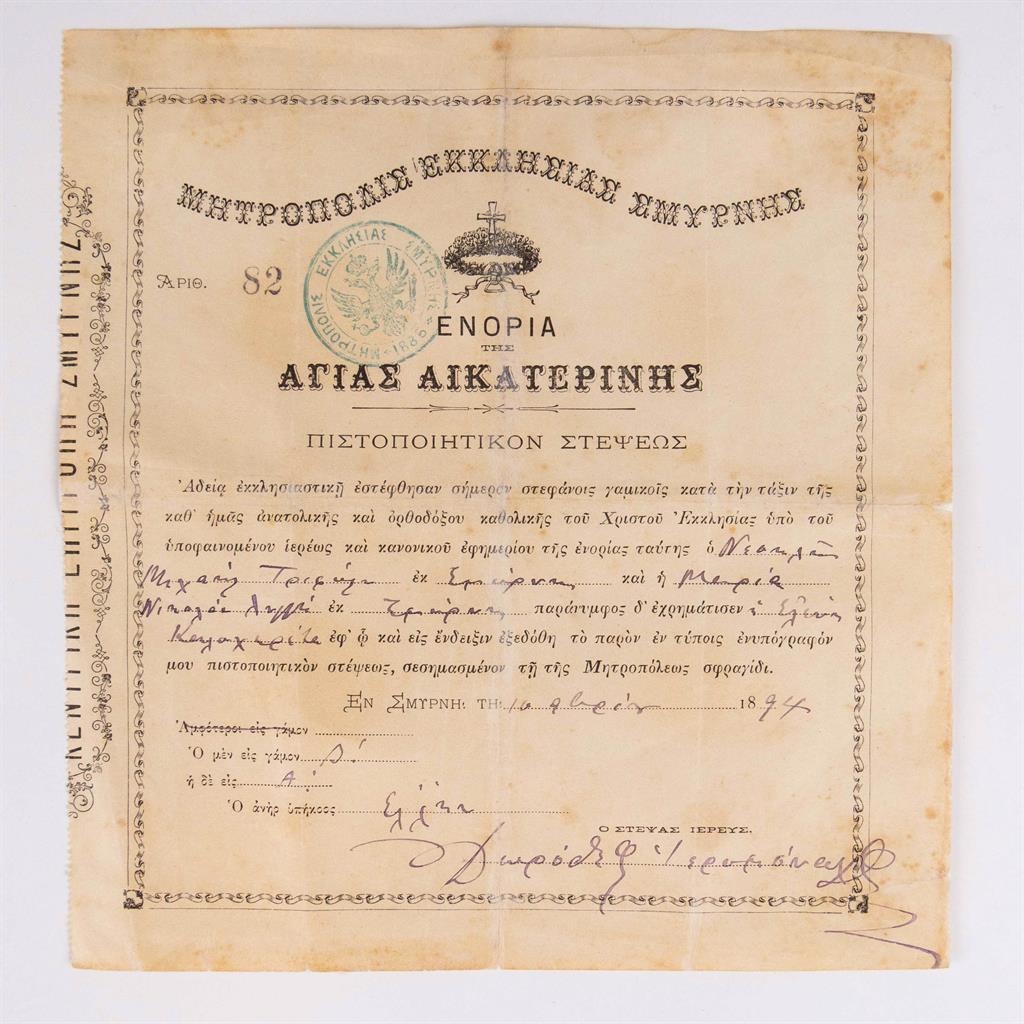 ΜΗΤΡΟΠΟΛΙΣ ΕΚΚΛΗΣΙΑΣ ΣΜΥΡΝΗΣ
ἈΡΙΘ. 82
ΜΗΤΡΟΠΟΛΙΣ ΕΚΚΛΗΣΙΑΣ ΣΜΥΡΝΗΣ
ΕΝΟΡΙΑ
ΤΗΣ
ΑΓΙΑΣ ΑΙΚΑΤΕΡΙΝΗΣ
ΠΙΣΤΟΠΟΙΗΤΙΚΟΝ ΣΤΕΨΕΩΣ
Ἀδείᾳ ἐκκλησιαστικῇ ἐστέφθησαν σήμερον στεφάνοις γαμικοῖς κατὰ τὴν τάξιν τῆς
καθ' ἡμᾶς ἀνατολικῆς καὶ ὀρθοδόξου καθολικῆς τοῦ Χριστοῦ Ἐκκλησίας ὑπὸ τοῦ
ὑποφαινομένου ἱερέως καὶ κανονικοῦ ἐφημερίου τῆς ἐνορίας ταύτης ὁ
Μιχαὴλ ἐκ Σμύρνης καὶ ἡ Μαρία
Νικολάου ἐκ Σμύρνης παράνυμφος δ' ἐχρημάτισεν ἡ Ἑλένη
ἐφ' ᾧ καὶ εἰς ἔνδειξιν ἐξεδόθη τὸ παρὸν ἐν τύποις ἐνυπόγραφόν
μου πιστοποιητικὸν στέψεως, σεσημασμένον τῇ τῆς Μητροπόλεως σφραγῖδι.
ἘΝ ΣΜΥΡΝῌ Τῌ 10 1894
Ἀμφότεροι εἰς γάμον
Ὁ μὲν εἰς γάμον Β΄
ἡ δὲ εἰς Α΄
Ὁ ἀνὴρ ὑπήκοος Ἕλλην
Ο ΣΤΕΨΑΣ ΙΕΡΕΥΣ.
Δωρόθεος Ἱερομόναχος